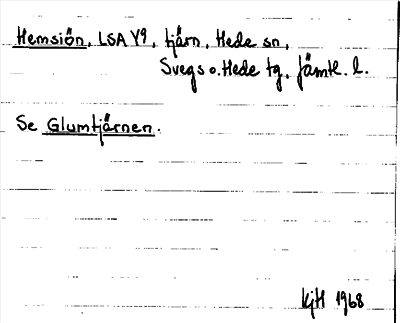 Hemsiön, LSA Y9, tjärn, Hede sn,
Svegs o. Hede tg, Jämtl. l.
Se Glumtjärnen.
KjH 1968